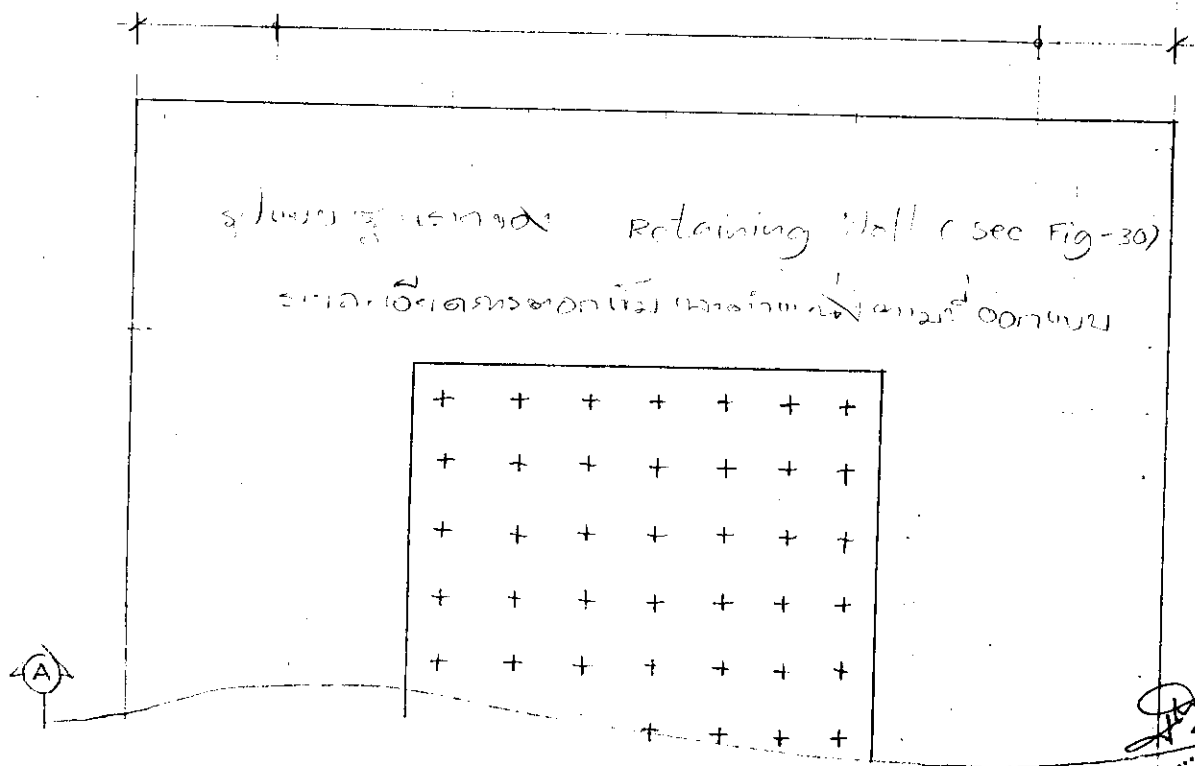 รูปแบบฐานรากของ Retaining Wall (see Fig-30)
รายละเอียดการตอกเข็ม ตามที่ออกแบบ
A